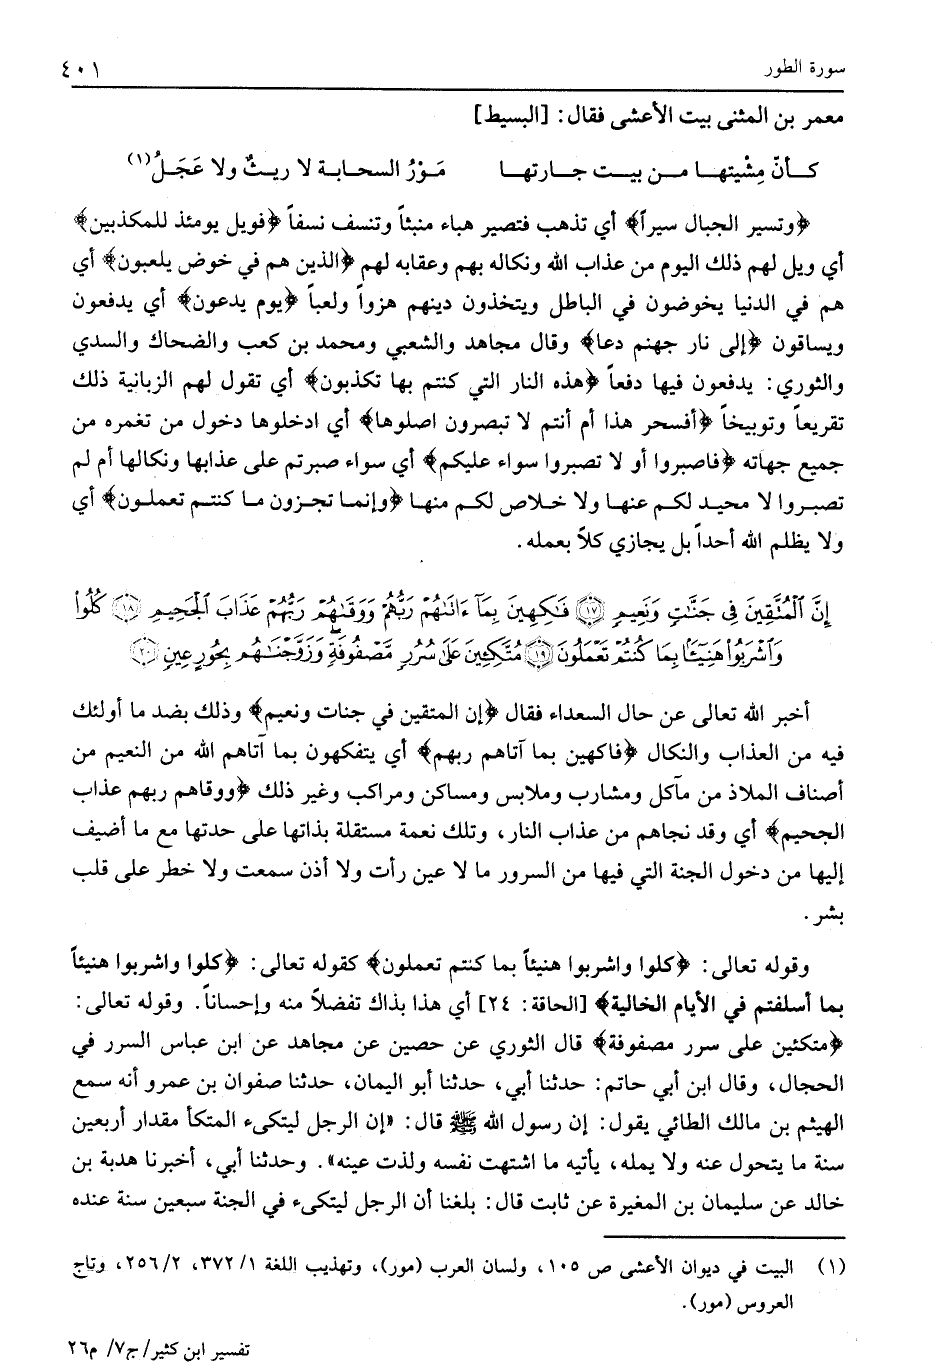 سورة الطور
٤٠١
معمر بن المثنى بيت الأعشى فقال: [البسيط]
كـأنّ مِشْيتهـا مـن بيـت جـارتهـا مَـوْرُ السحـابـة لا ريـثٌ ولا عَجَـلُ(١)
﴿وتسير الجبال سيراً﴾ أي تذهب فتصير هباء منبثاً وتنسف نسفاً ﴿فويل يومئذ للمكذبين﴾
أي ويل لهم ذلك اليوم من عذاب الله ونكاله بهم وعقابه لهم ﴿الذين هم في خوض يلعبون﴾ أي
هم في الدنيا يخوضون في الباطل ويتخذون دينهم هزواً ولعباً ﴿يوم يدعون﴾ أي يدفعون
ويساقون ﴿إلى نار جهنم دعا﴾ وقال مجاهد والشعبي ومحمد بن كعب والضحاك والسدي
والثوري: يدفعون فيها دفعاً ﴿هذه النار التي كنتم بها تكذبون﴾ أي تقول لهم الزبانية ذلك
تقريعاً وتوبيخاً ﴿أفسحر هذا أم أنتم لا تبصرون اصلوها﴾ أي ادخلوها دخول من تغمره من
جميع جهاته ﴿فاصبروا أو لا تصبروا سواء عليكم﴾ أي سواء صبرتم على عذابها ونكالها أم لم
تصبـروا لا محيـد لكـم عنهـا ولا خـلاص لكـم منهـا ﴿وإنمـا تجـزون مـا كنتـم تعملـون﴾ أي
ولا يظلم الله أحداً بل يجازي كلاً بعمله.
إِنَّ ٱلْمُتَّقِينَ فِى جَنَّٰتٍ وَنَعِيمٍ ۝١٧ فَٰكِهِينَ بِمَآ ءَاتَىٰهُمْ رَبُّهُمْ وَوَقَىٰهُمْ رَبُّهُمْ عَذَابَ ٱلْجَحِيمِ ۝١٨ كُلُوا۟
وَٱشْرَبُوا۟ هَنِيٓـًٔۢا بِمَا كُنتُمْ تَعْمَلُونَ ۝١٩ مُتَّكِـِٔينَ عَلَىٰ سُرُرٍ مَّصْفُوفَةٍ ۖ وَزَوَّجْنَٰهُم بِحُورٍ عِينٍ ۝٢٠
أخبر الله تعالى عن حال السعداء فقال ﴿إن المتقين في جنات ونعيم﴾ وذلك بضد ما أولئك
فيه من العذاب والنكال ﴿فاكهين بما آتاهم ربهم﴾ أي يتفكهون بما آتاهم الله من النعيم من
أصناف الملاذ من مآكل ومشارب وملابس ومساكن ومراكب وغير ذلك ﴿ووقاهم ربهم عذاب
الجحيم﴾ أي وقد نجاهم من عذاب النار، وتلك نعمة مستقلة بذاتها على حدتها مع ما أضيف
إليها من دخول الجنة التي فيها من السرور ما لا عين رأت ولا أذن سمعت ولا خطر على قلب
بشر.
وقوله تعالى: ﴿كلوا واشربوا هنيئاً بما كنتم تعملون﴾ كقوله تعالى: ﴿كلوا واشربوا هنيئاً
بما أسلفتم في الأيام الخالية﴾ [الحاقة: ٢٤] أي هذا بذاك تفضلاً منه وإحساناً. وقوله تعالى:
﴿متكئين على سرر مصفوفة﴾ قال الثوري عن حصين عن مجاهد عن ابن عباس السرر في
الحجال، وقال ابن أبي حاتم: حدثنا أبي، حدثنا أبو اليمان، حدثنا صفوان بن عمرو أنه سمع
الهيثم بن مالك الطائي يقول: إن رسول الله ﷺ قال: «إن الرجل ليتكىء المتكأ مقدار أربعين
سنة ما يتحول عنه ولا يمله، يأتيه ما اشتهت نفسه ولذت عينه». وحدثنا أبي، أخبرنا هدبة بن
خالد عن سليمان بن المغيرة عن ثابت قال: بلغنا أن الرجل ليتكىء في الجنة سبعين سنة عنده
(١) البيت في ديوان الأعشى ص ١٠٥، ولسان العرب (مور)، وتهذيب اللغة ١/ ٣٧٢، ٢/ ٢٥٦، وتاج
العروس (مور).
تفسير ابن كثير/ ج٧/ م٢٦